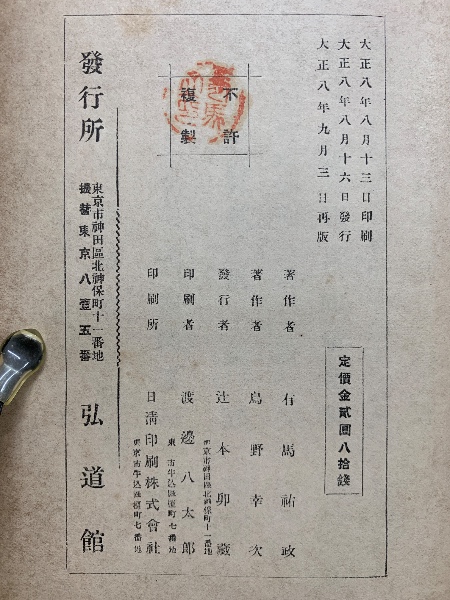 大正八年八月十三日印刷
大正八年八月十六日發行
大正八年九月三日再版
不許
複製
定價金貳圓八拾錢
著作者 有馬祐政
著作者 鳥野幸次
發行者 辻本卯藏
東京市神田區北神保町十一番地
印刷者 渡邊八太郎
東京市牛込區榎町七番地
印刷所 日淸印刷株式會社
東京市牛込區榎町七番地
發行所
東京市神田區北神保町十一番地
振替東京八壹五番
弘道館